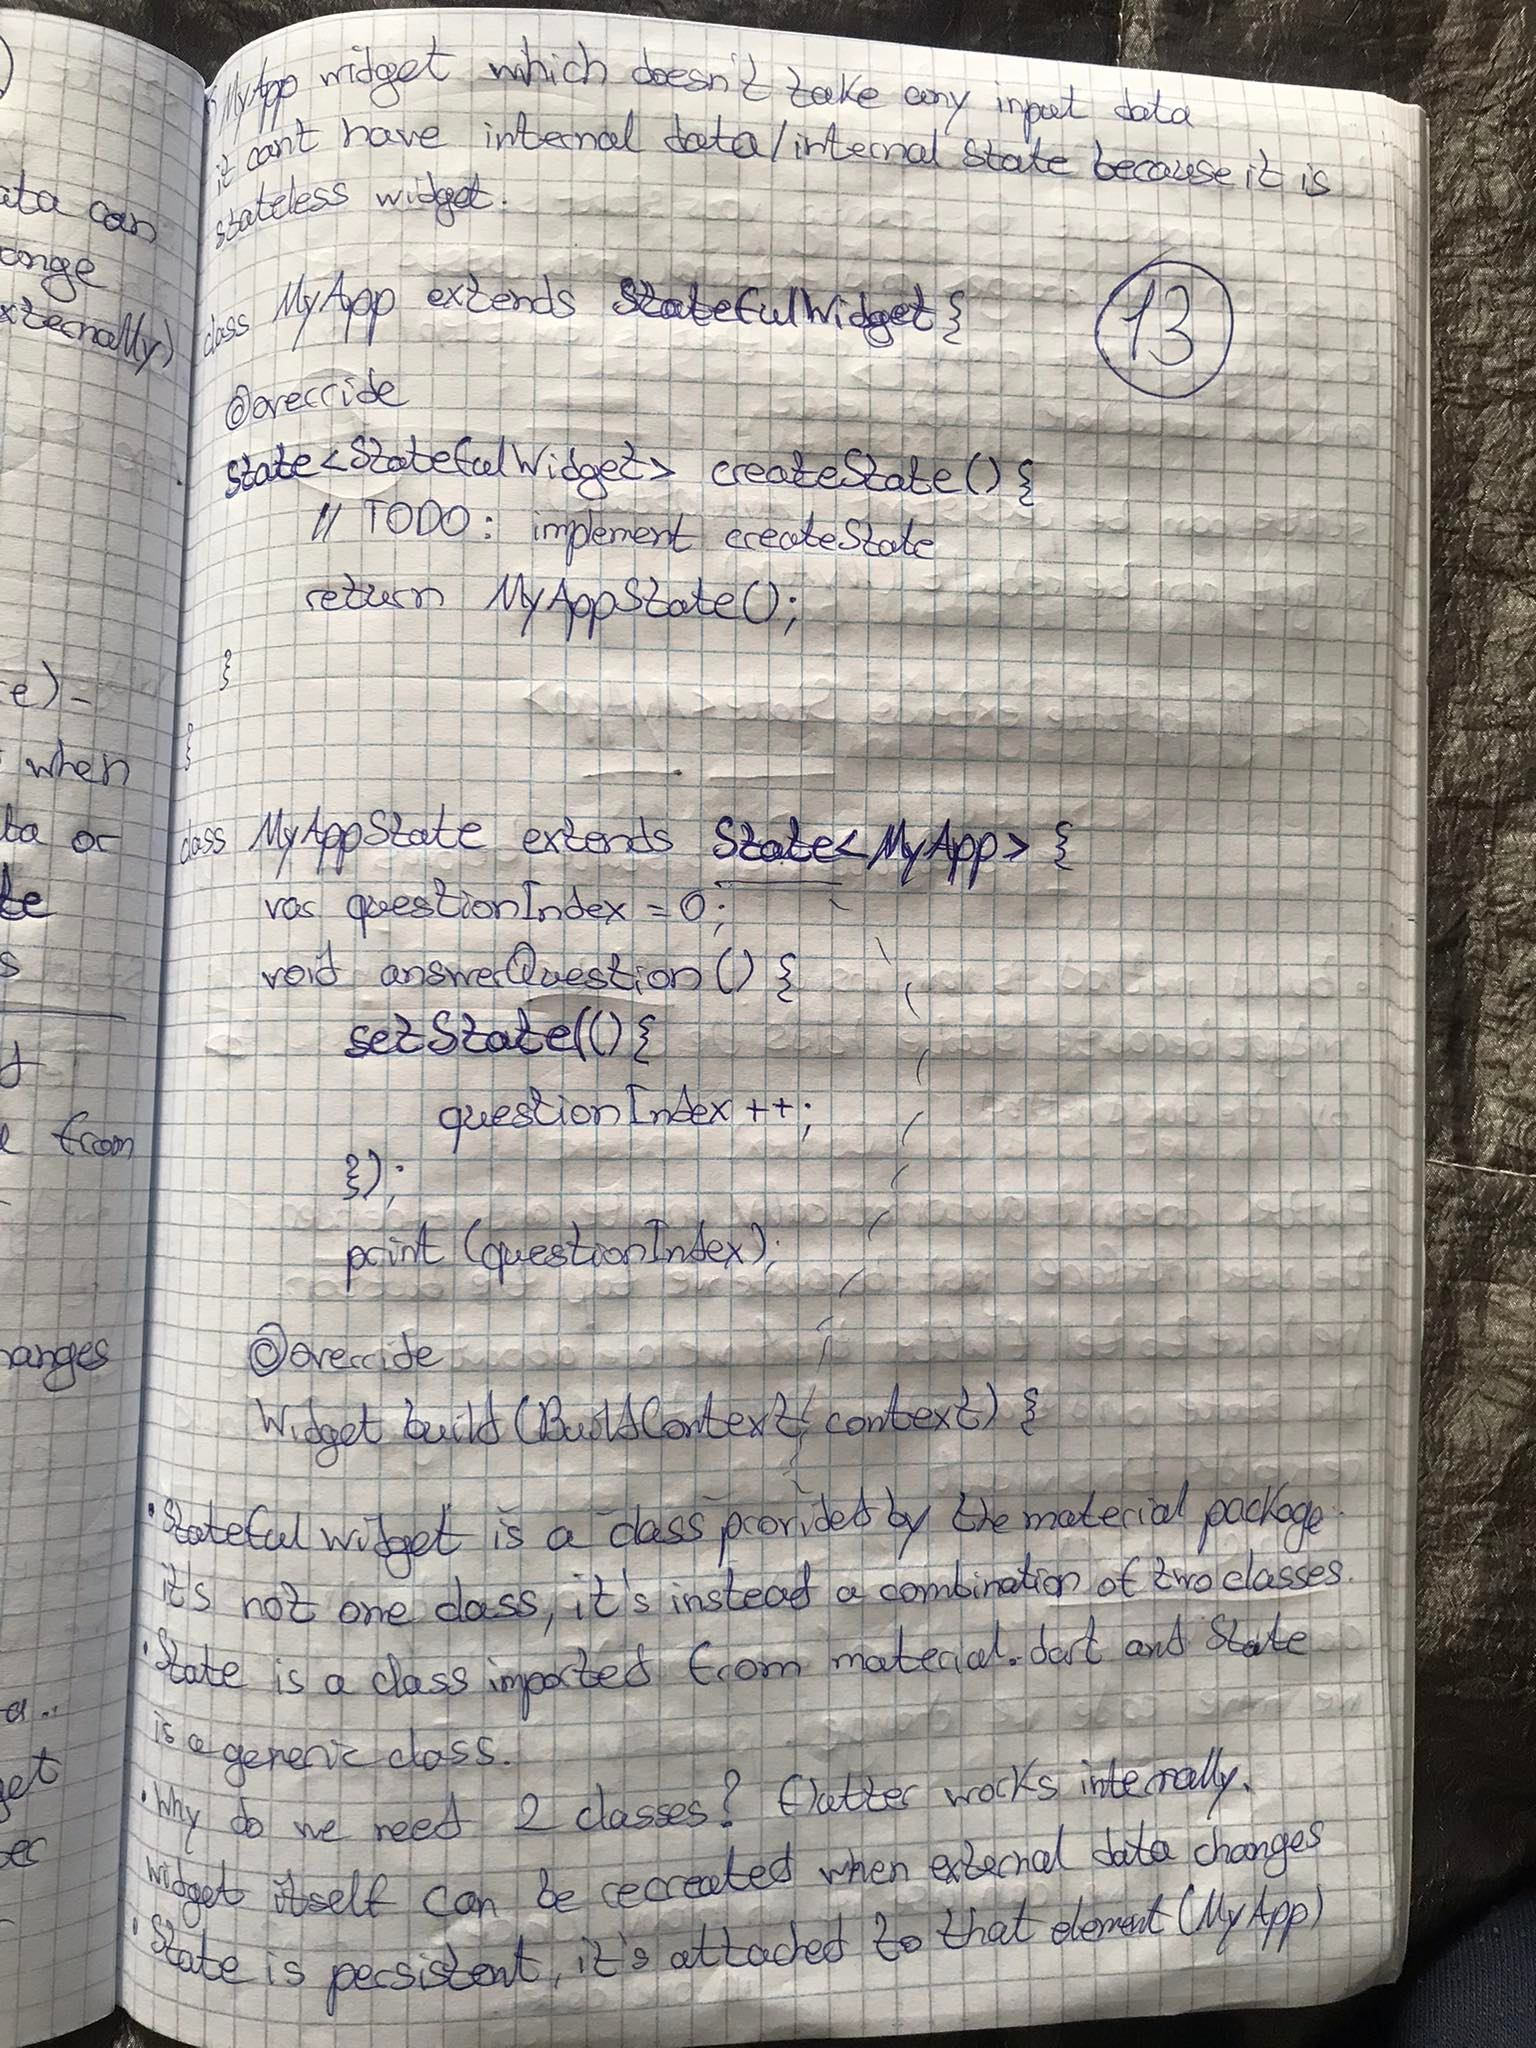 ata can
ange
xternally)
e)-
when
ta or
te
s
from
hanges
a..
get
er
* MyApp widget which doesn't take any input data
it can't have internal data/internal state because it is
stateless widget.
13
class MyApp extends StatefulWidget {
@override
State<StatefulWidget> createState() {
// TODO: implement createState
return MyAppState();
}
}
class MyAppState extends State<MyApp> {
var questionIndex = 0;
void answerQuestion() {
setState(() {
questionIndex ++;
});
print (questionIndex);
@override
Widget build (BuildContext context) {
• Stateful widget is a class provided by the material package.
it's not one class, it's instead a combination of two classes.
• State is a class imported from material.dart and State
is a generic class.
• Why do we need 2 classes? flutter works internally.
widget itself can be recreated when external data changes
• State is persistent, it's attached to that element (MyApp)